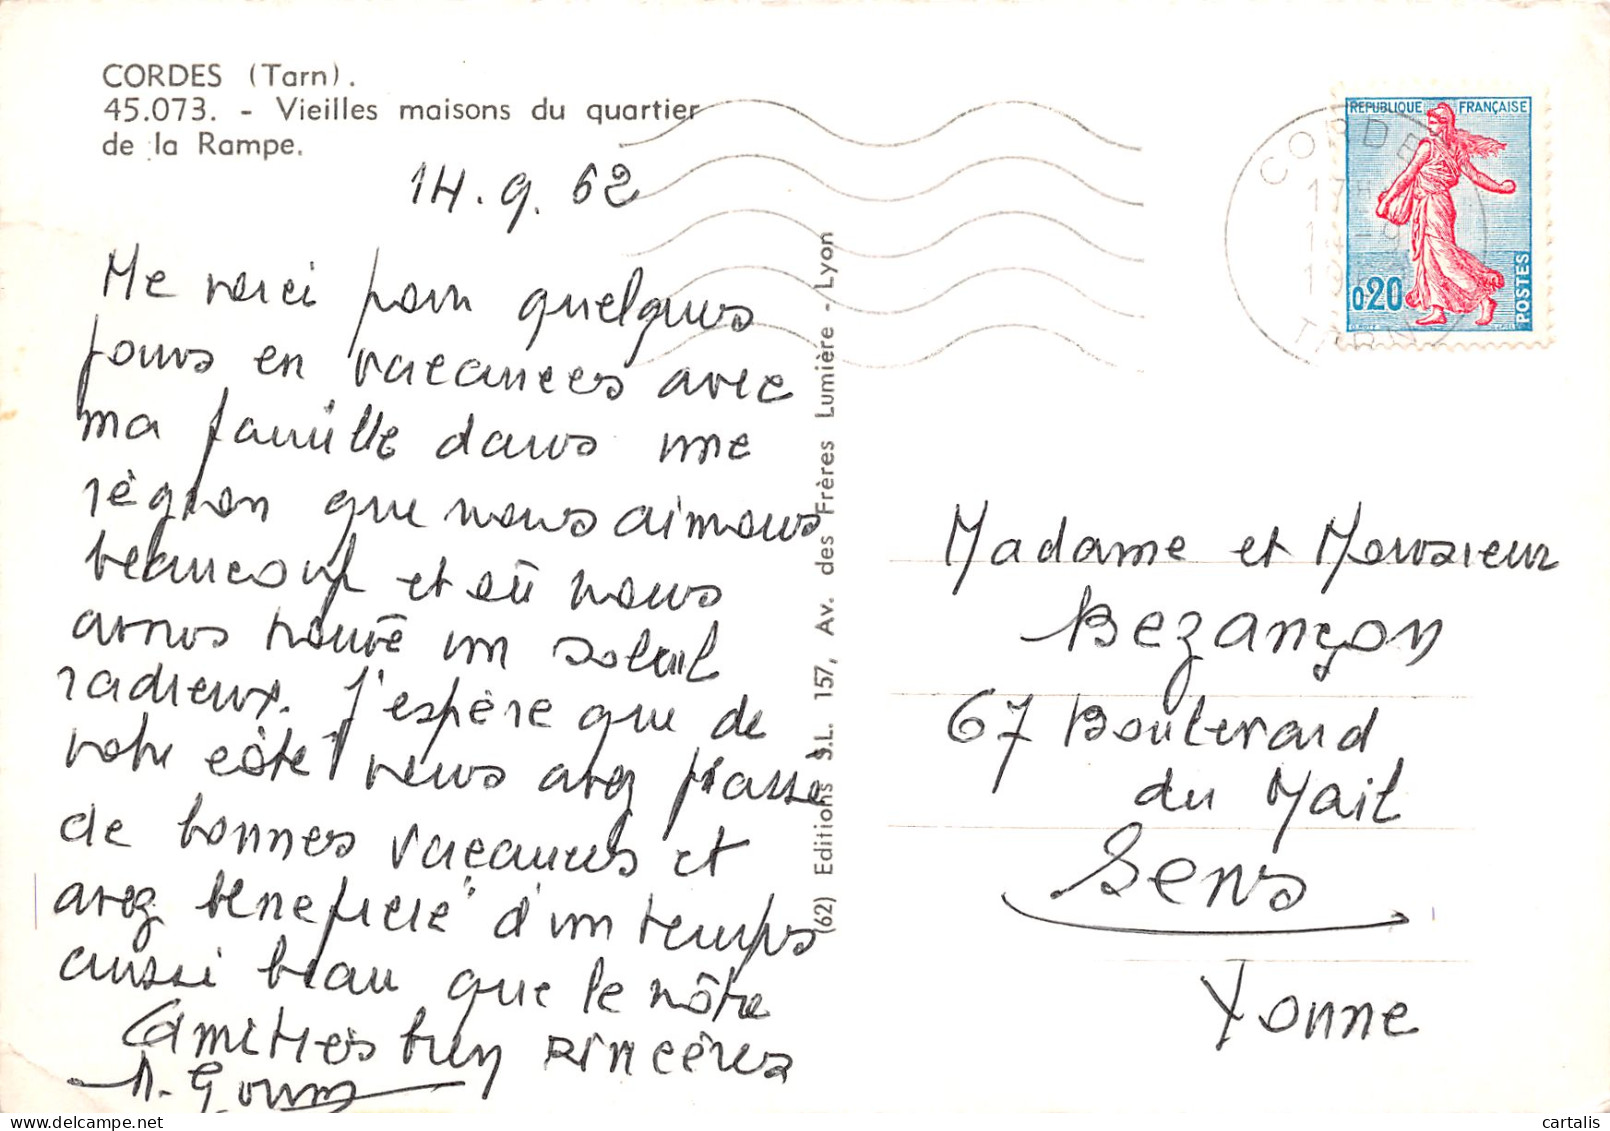 CORDES (Tarn).
45.073. - Vieilles maisons du quartier
de la Rampe.
14.9.62
Me voici pour quelques
jours en vacances avec
ma famille dans une
région que nous aimons
beaucoup et où nous
avons trouvé un soleil
radieux. J'espère que de
votre côté vous avez passé
de bonnes vacances et
avez bénéficié d'un temps
aussi beau que le nôtre
Amitiés bien sincères
(62) Editions S.L. 157, Av. des Frères Lumière - Lyon
REPUBLIQUE FRANÇAISE
0,20
POSTES
CORDES
17H
14-9
19
TARN
Madame et Monsieur
Bezançon
67 Boulevard
du Mail
Sens
Yonne
cartalis